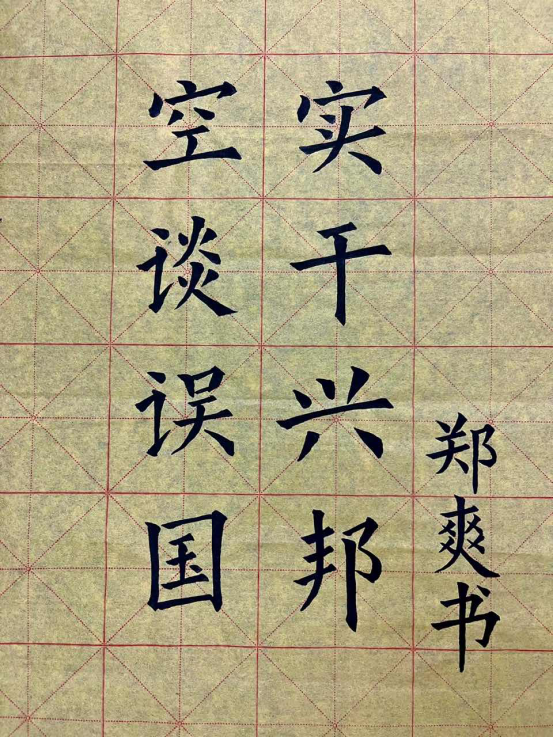 空谈误国
实干兴邦
郑爽书